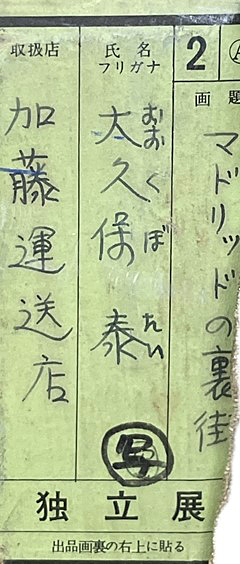 2
画題
マドリッドの裏街
氏名
フリガナ
大久保泰
おおくぼたい
写
取扱店
加藤運送店
独立展
出品画裏の右上に貼る